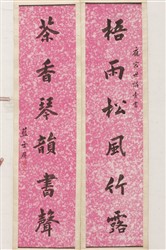 梧雨松風竹露
茶香琴韻書聲